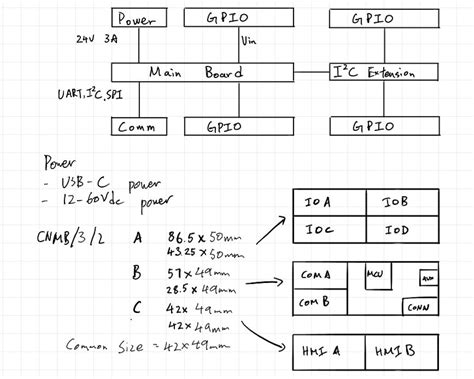 Power GPIO GPIO
24V 3A Vin
Main Board I²C Extension
UART, I²C, SPI
Comm GPIO GPIO
Power
- USB-C power
- 12-60Vdc power
CNMB/3/2 A 86.5 x 50mm
43.25 x 50mm
B 57 x 49mm
28.5 x 49mm
C 42 x 49mm
42 x 49mm
Common Size = 42 x 49mm
IOA IOB
IOC IOD
COM A MCU
COM B CONN
HMI A HMI B